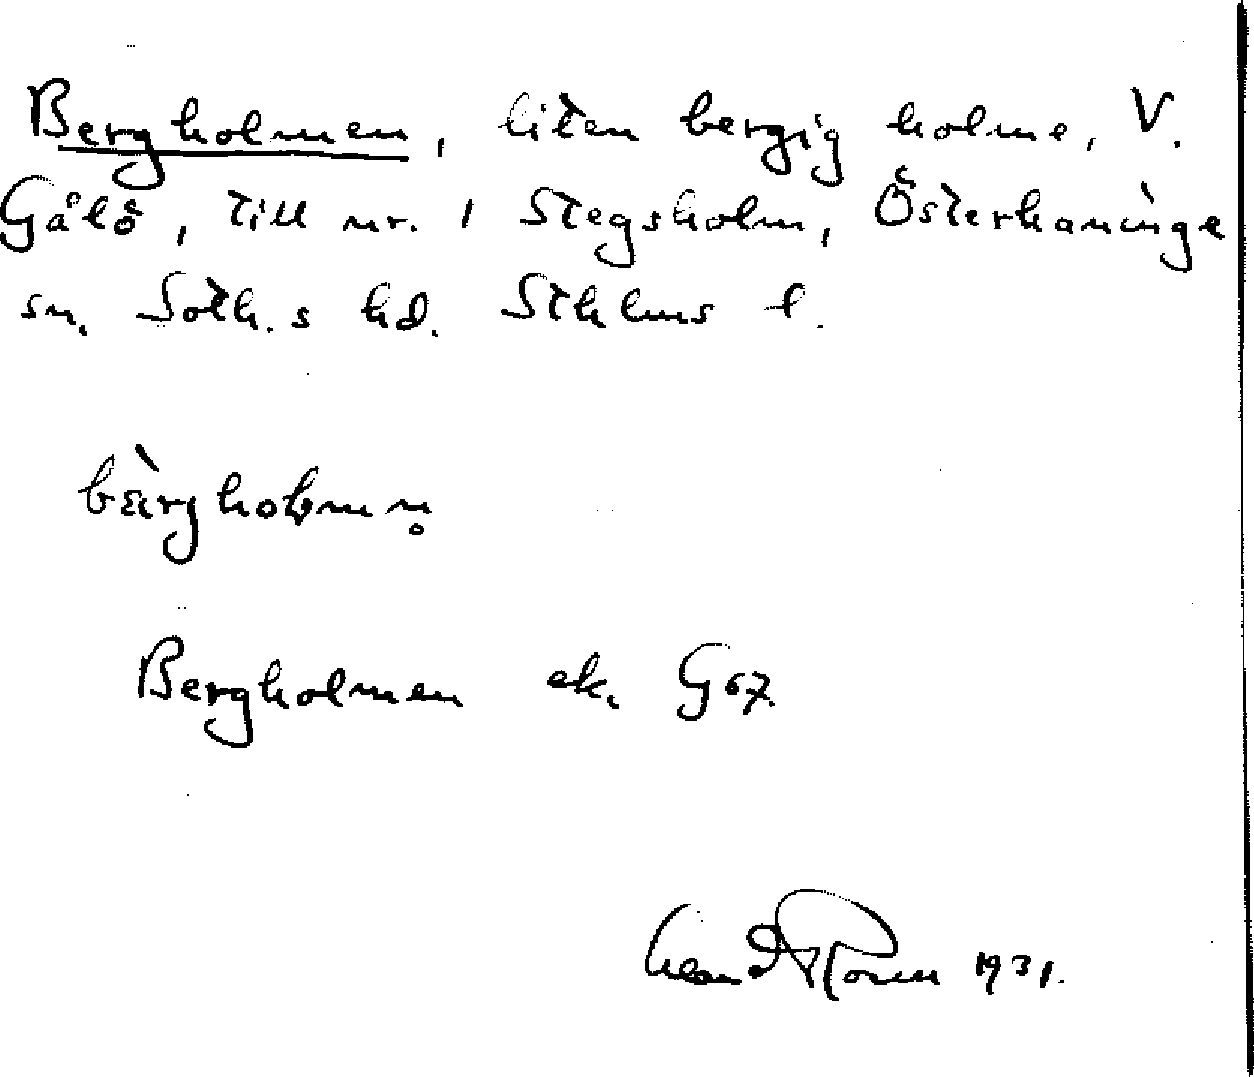 Bergholmen, liten bergig holme, V.
Gålö, till nr. 1 Stegsholm, Österhaninge
sn. Soth.s hd. Sthlms l.
Bergholmen ek. G 67.
1931.